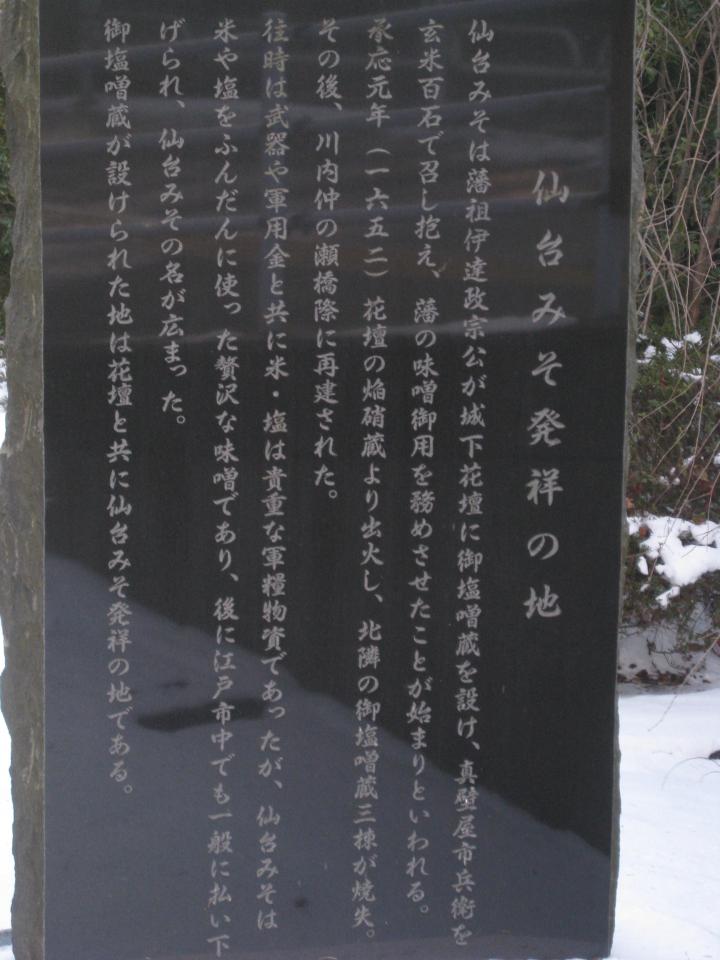 仙台みそ発祥の地
仙台みそは藩祖伊達政宗公が城下花壇に御塩噌蔵を設け、真壁屋市兵衛を
玄米百石で召し抱え、藩の味噌御用を務めさせたことが始まりといわれる。
承応元年(一六五二)花壇の焔硝蔵より出火し、北隣の御塩噌蔵三棟が焼失。
その後、川内仲の瀬橋際に再建された。
往時は武器や軍用金と共に米・塩は貴重な軍糧物資であったが、仙台みそは
米や塩をふんだんに使った贅沢な味噌であり、後に江戸市中でも一般に払い下
げられ、仙台みその名が広まった。
御塩噌蔵が設けられた地は花壇と共に仙台みそ発祥の地である。